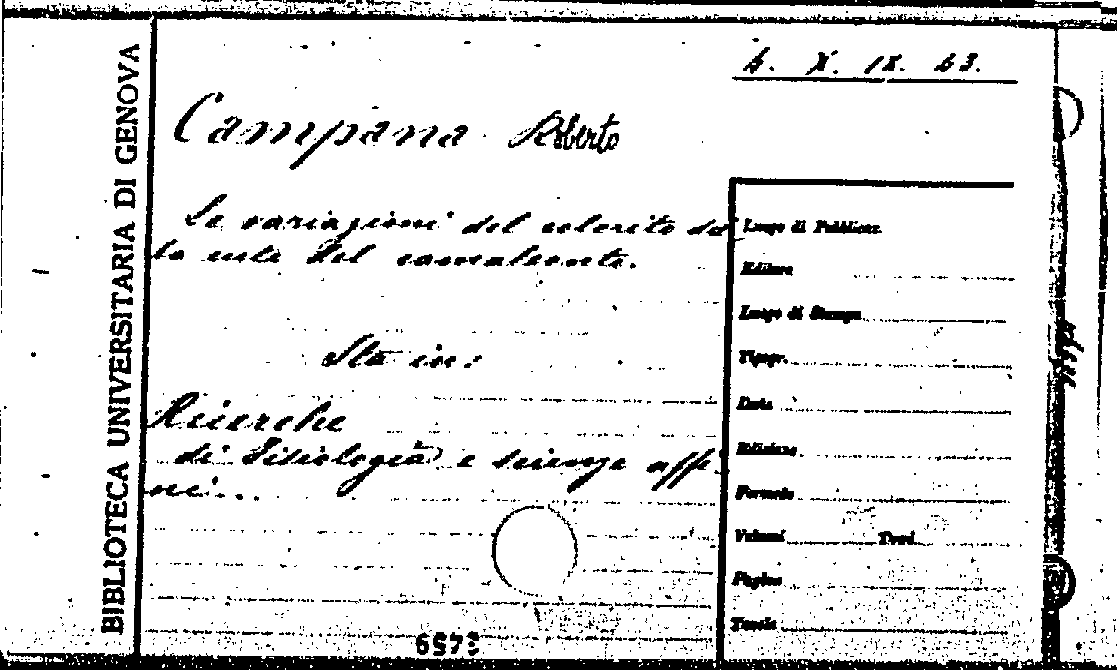 BIBLIOTECA UNIVERSITARIA DI GENOVA
4. X. IX. 63.
Campana Roberto
Le variazioni del colorito del
la cute del camaleonte.
Sta in:
Ricerche
di Fisiologia e scienze affi
ni...
Luogo di Pubblicaz.
Editore
Luogo di Stampa
Tipogr.
Data
Edizione
Formato
Volumi Tomi
Pagine
Tavole